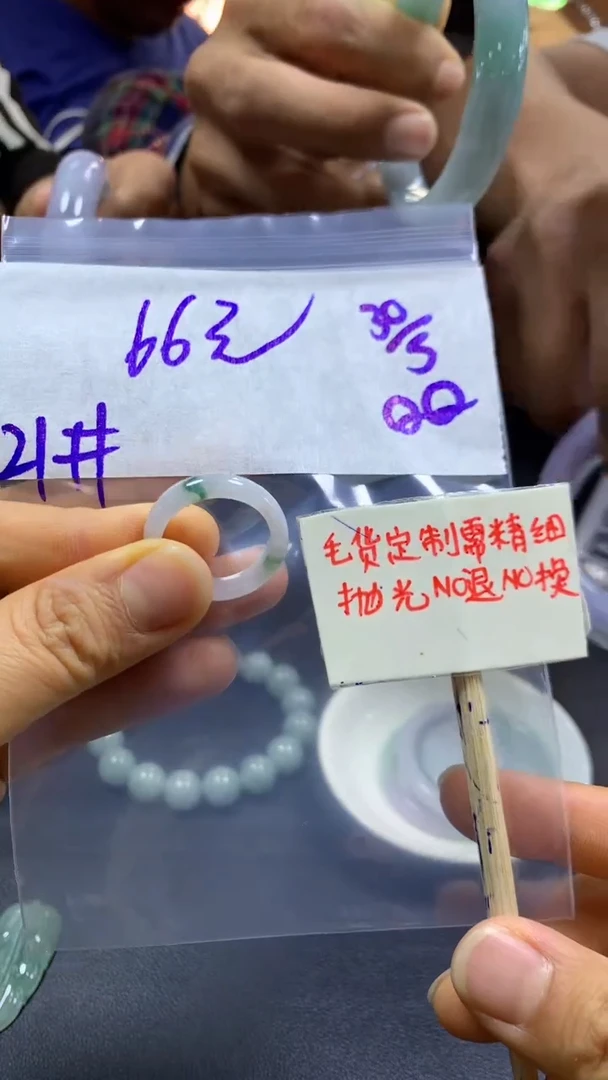 66元
30/5
QQ
21#
毛货定制需精细
抛光NO退NO换